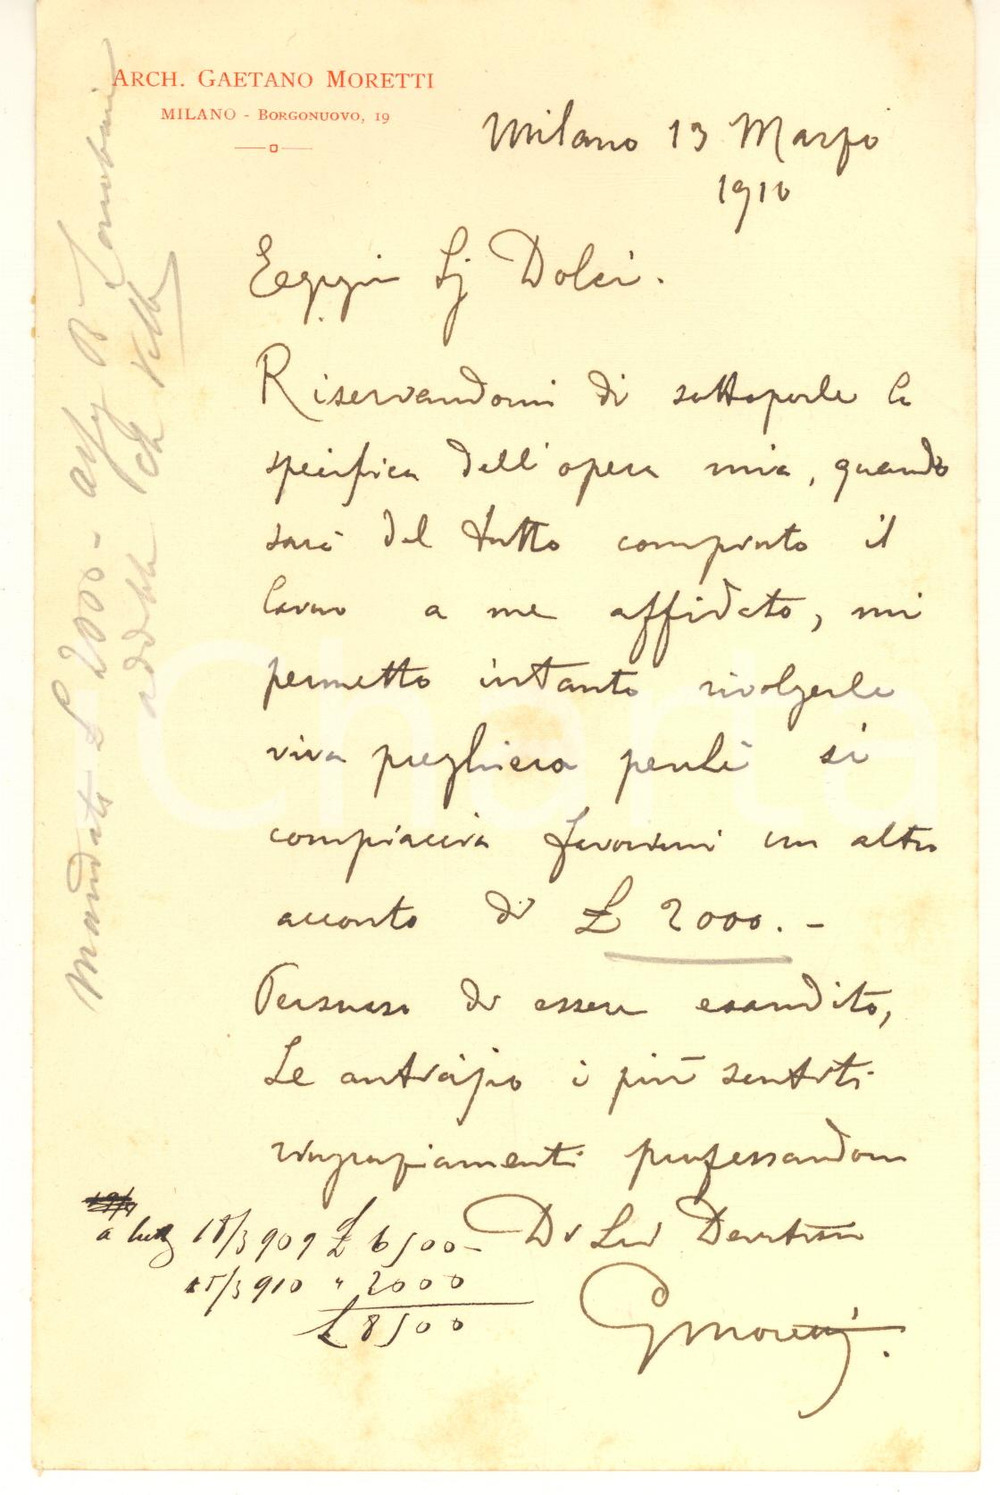 ARCH. GAETANO MORETTI
MILANO - BORGONUOVO, 19
Milano 13 Marzo
1910
Egregio Sig Dolci.
Riservandomi di sottoporle la
specifica dell'opera mia, quando
sarà del tutto compiuto il
lavoro a me affidato, mi
permetto intanto rivolgerle
viva preghiera perchè si
compiaccia favorirmi un altro
acconto di £ 2000. -
Persuaso di essere esaudito,
Le anticipo i più sentiti
ringraziamenti professandomi
Di Lei Devotissimo
GMoretti.
a tutto 18/3 909 £ 6500-
15/3 910 " 2000
£ 8500
Mandato £ 2000 -
Charta